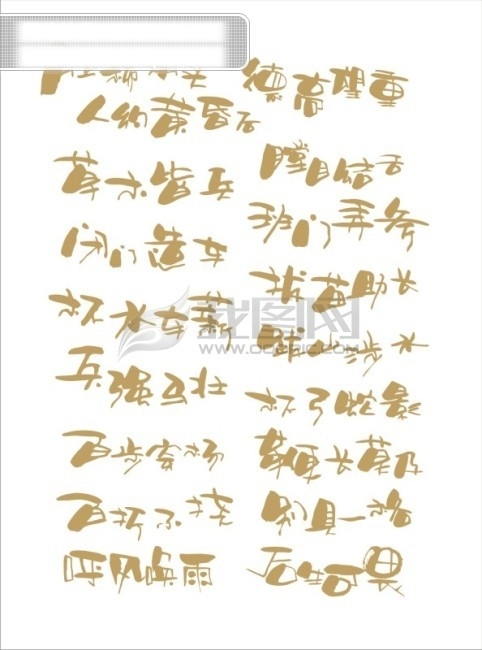 德高望重
人约黄昏后
草木皆兵
瞠目结舌
班门弄斧
闭门造车
拔苗助长
杯水车薪
跋山涉水
兵强马壮
杯弓蛇影
百步穿杨
鞭长莫及
百折不挠
别具一格
呼风唤雨
后生可畏